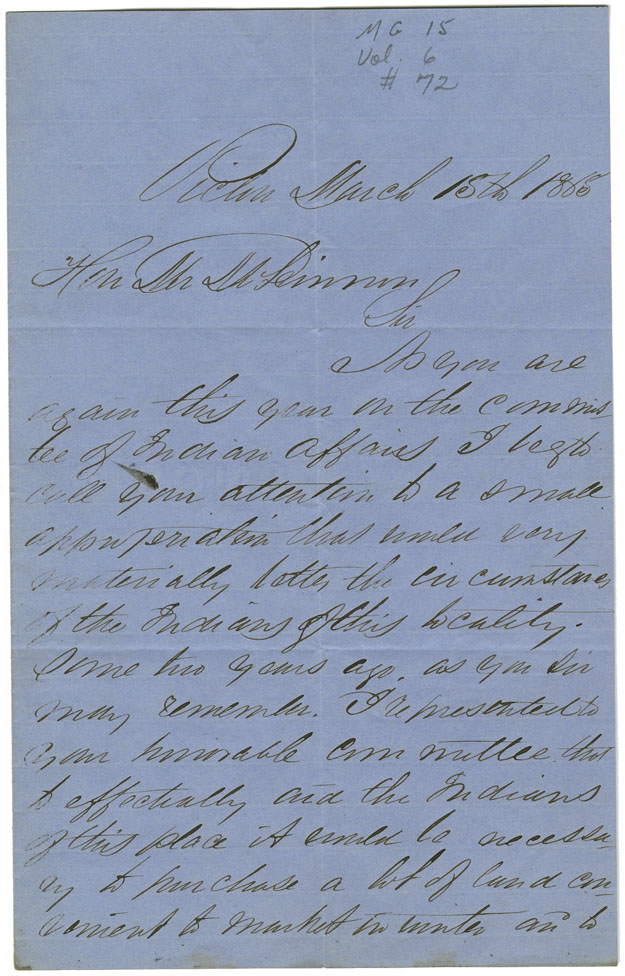 MG 15
Vol. 6
# 72
Pictou March 15th 1865
Hon Mr McKinnon
Sir
As you are
again this year on the commit
tee of Indian Affairs, I beg to
call your attention to a small
appropriation that would very
materially better the circumstances
of the Indians of this locality.
Some two years ago, as you Sir
may remember. I represented to
your honorable committee that
to effectually aid the Indians
of this place it would be necessa
ry to purchase a lot of land con
venient to market in winter and to